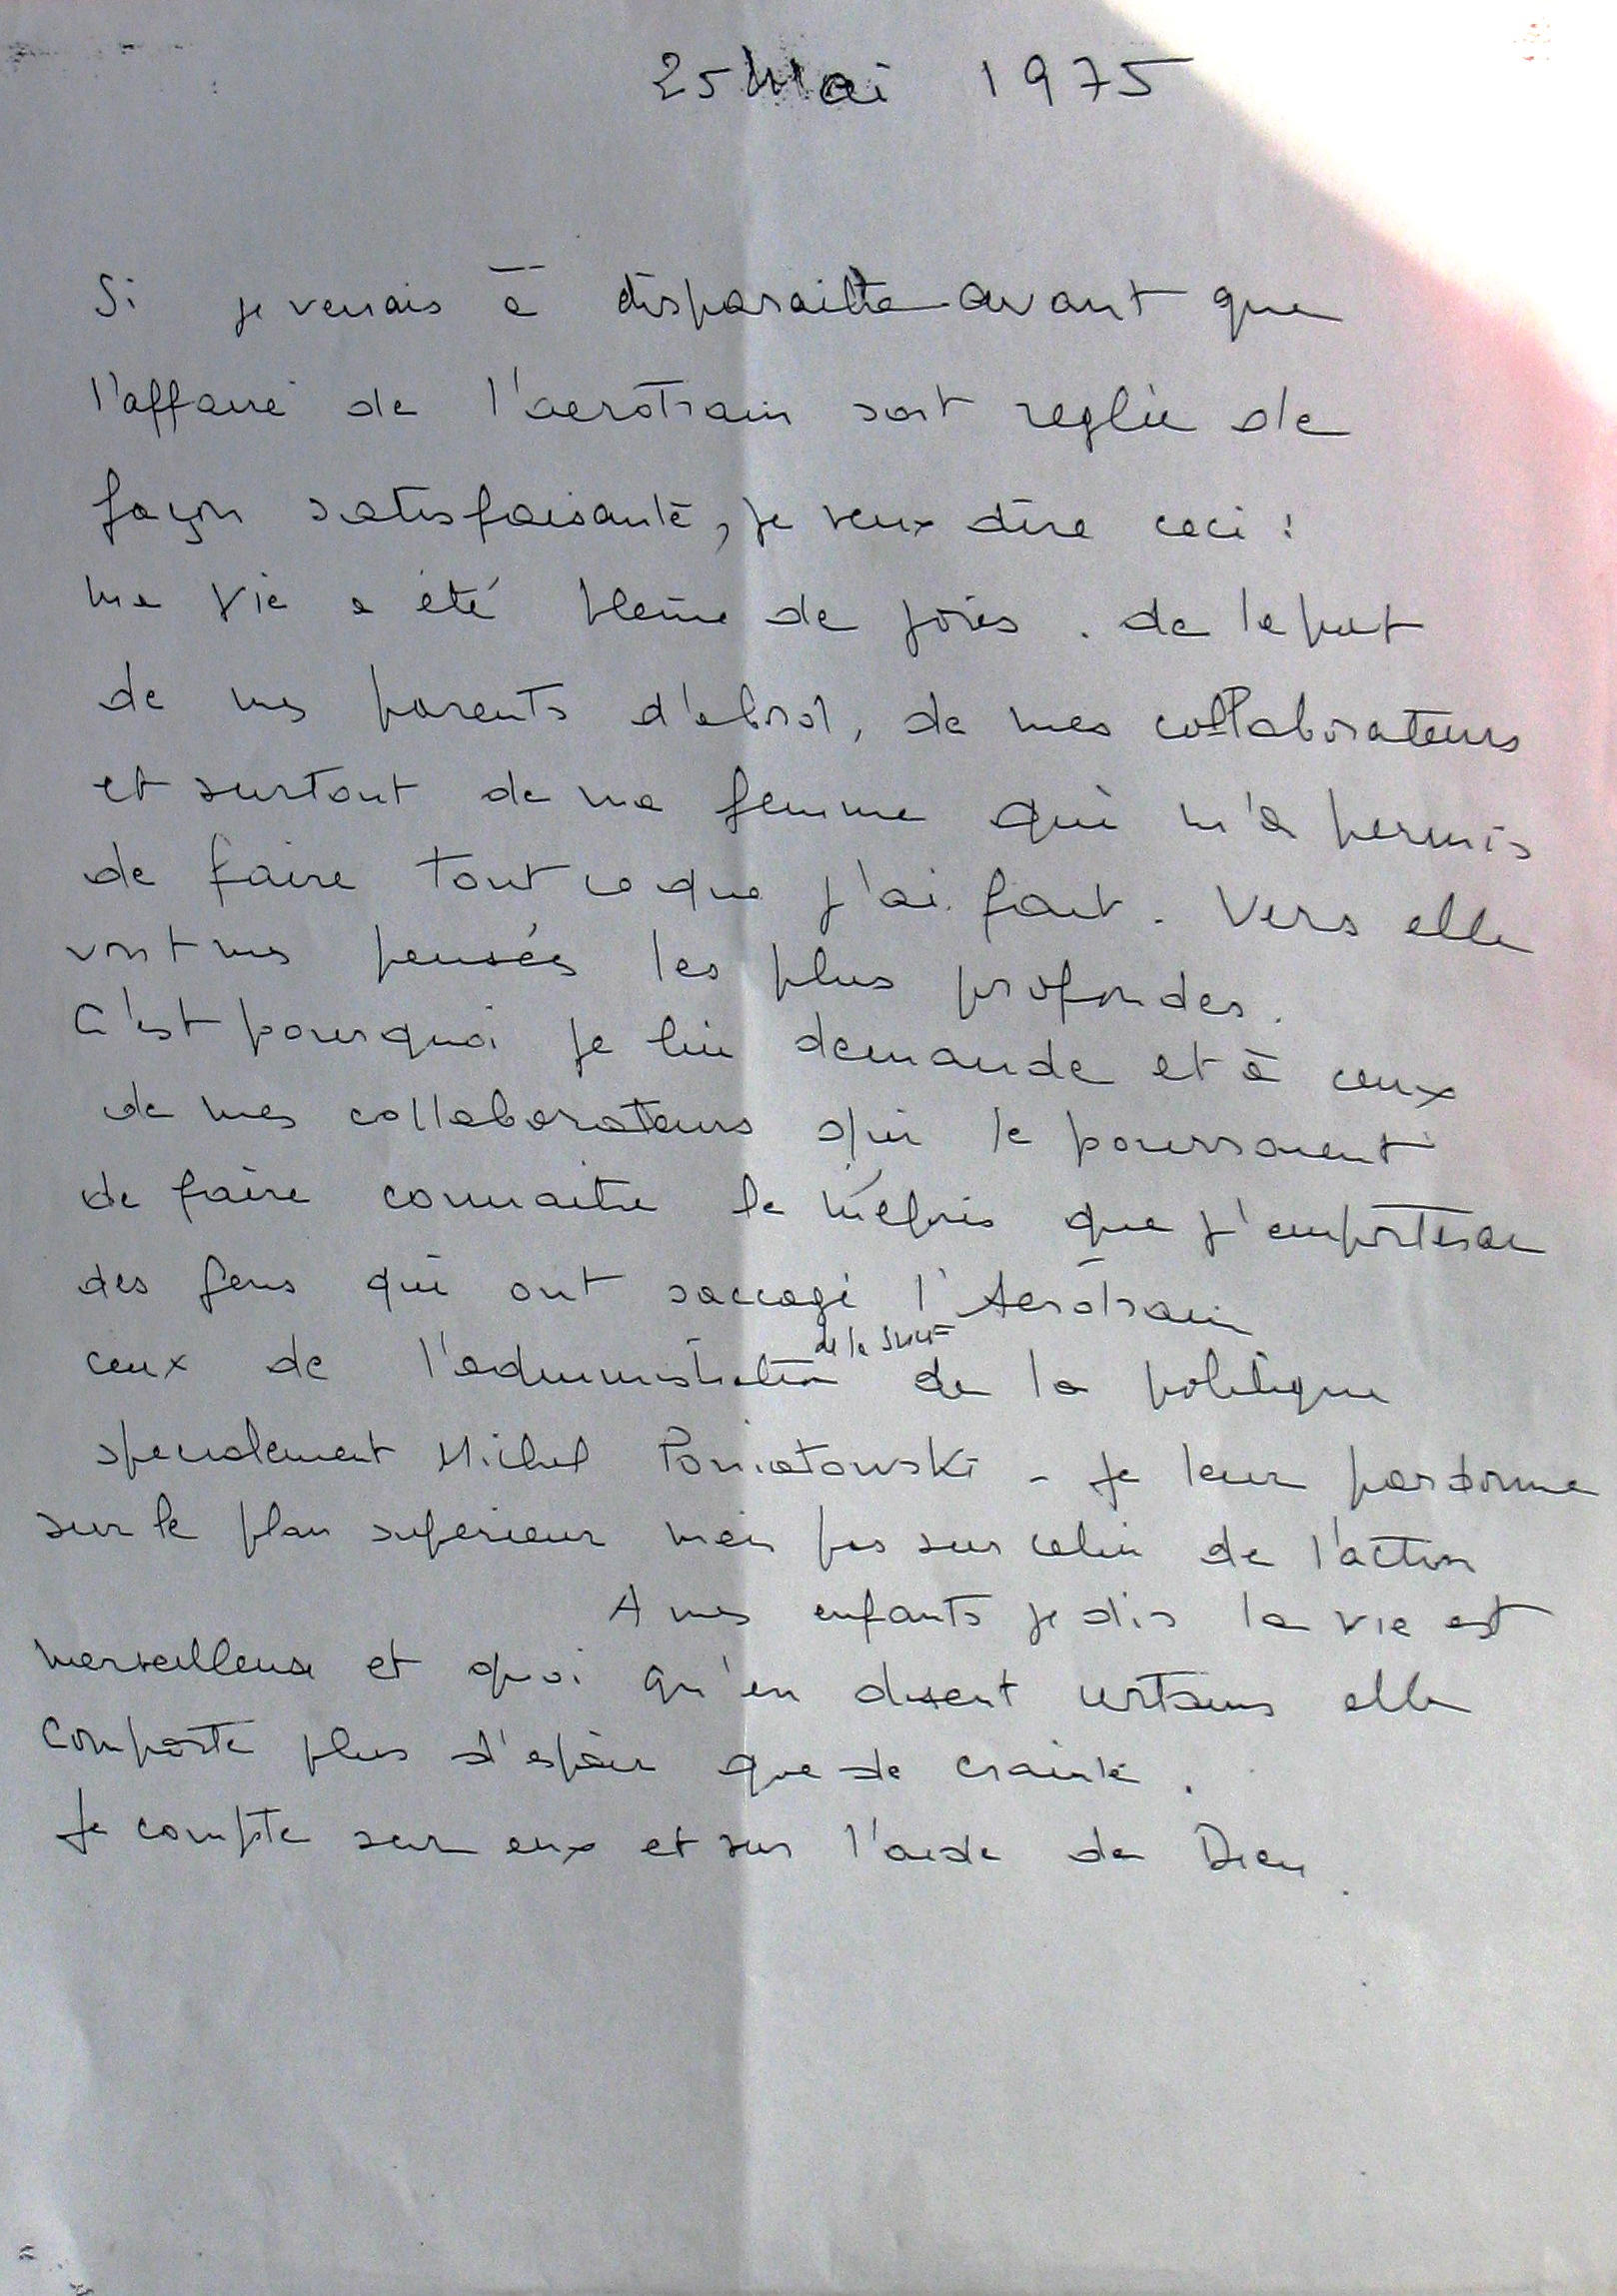 25 Mai 1975
Si je venais à disparaitre avant que
l'affaire de l'aerotrain soit reglée de
façon satisfaisante, je veux dire ceci :
ma vie a été pleine de joies . de la part
de mes parents d'abord, de mes collaborateurs
et surtout de ma femme qui m'a permis
de faire tout ce que j'ai fait . Vers elle
vont mes pensées les plus profondes .
C'est pourquoi je lui demande et à ceux
de mes collaborateurs qui le pourraient
de faire connaitre le mépris que j'emporterai
des gens qui ont saccagé l'Aérotrain
ceux de l'administration de la SNCF de la politique
specialement Michel Poniatowski - Je leur pardonne
sur le plan superieur mais pas sur celui de l'action
A mes enfants je dis la vie est
merveilleuse et quoi qu'en disent certains elle
comporte plus d'espoir que de crainte .
Je compte sur eux et sur l'aide de Dieu .